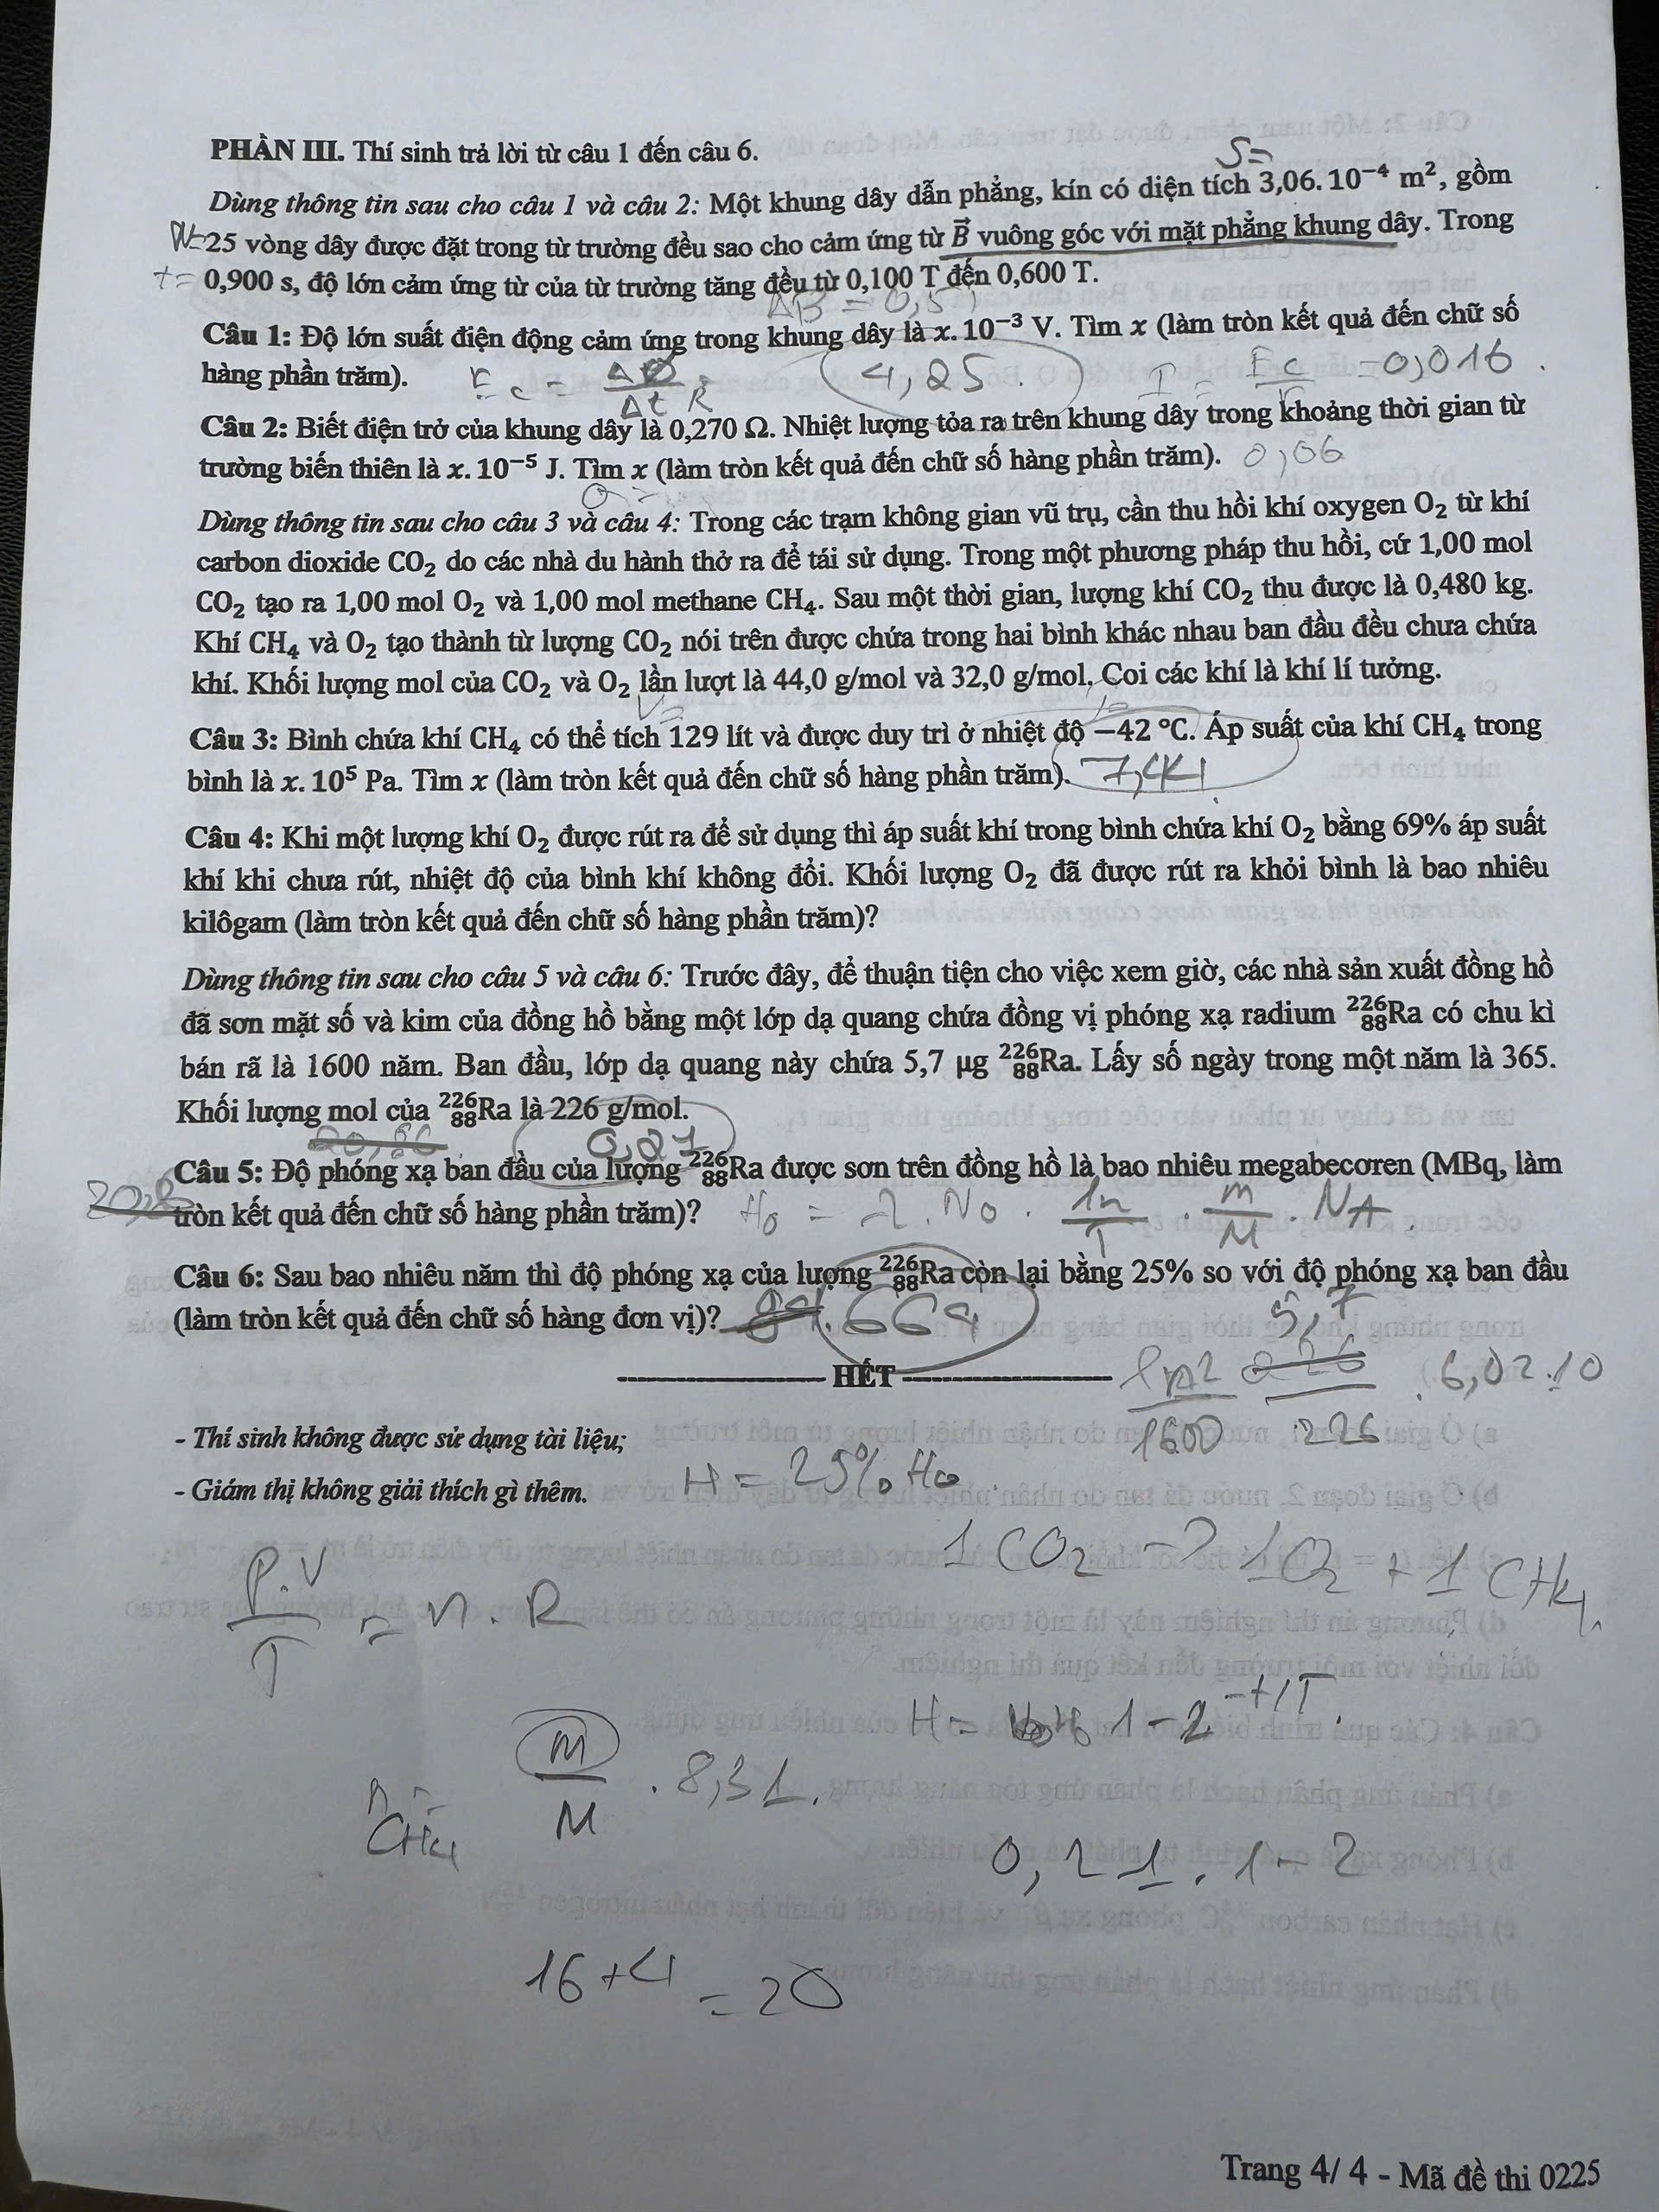 PHẦN III. Thí sinh trả lời từ câu 1 đến câu 6.
S=
Dùng thông tin sau cho câu 1 và câu 2: Một khung dây dẫn phẳng, kín có diện tích 3,06. 10⁻⁴ m², gồm
N= 25 vòng dây được đặt trong từ trường đều sao cho cảm ứng từ B⃗ vuông góc với mặt phẳng khung dây. Trong
t= 0,900 s, độ lớn cảm ứng từ của từ trường tăng đều từ 0,100 T đến 0,600 T.
ΔB = 0,5
Câu 1: Độ lớn suất điện động cảm ứng trong khung dây là x. 10⁻³ V. Tìm x (làm tròn kết quả đến chữ số
hàng phần trăm). 4,25 = 0,016
Câu 2: Biết điện trở của khung dây là 0,270 Ω. Nhiệt lượng tỏa ra trên khung dây trong khoảng thời gian từ
trường biến thiên là x. 10⁻⁵ J. Tìm x (làm tròn kết quả đến chữ số hàng phần trăm). 0,06
Dùng thông tin sau cho câu 3 và câu 4: Trong các trạm không gian vũ trụ, cần thu hồi khí oxygen O₂ từ khí
carbon dioxide CO₂ do các nhà du hành thở ra để tái sử dụng. Trong một phương pháp thu hồi, cứ 1,00 mol
CO₂ tạo ra 1,00 mol O₂ và 1,00 mol methane CH₄. Sau một thời gian, lượng khí CO₂ thu được là 0,480 kg.
Khí CH₄ và O₂ tạo thành từ lượng CO₂ nói trên được chứa trong hai bình khác nhau ban đầu đều chưa chứa
khí. Khối lượng mol của CO₂ và O₂ lần lượt là 44,0 g/mol và 32,0 g/mol. Coi các khí là khí lí tưởng.
V=
Câu 3: Bình chứa khí CH₄ có thể tích 129 lít và được duy trì ở nhiệt độ −42 °C. Áp suất của khí CH₄ trong
bình là x. 10⁵ Pa. Tìm x (làm tròn kết quả đến chữ số hàng phần trăm).
Câu 4: Khi một lượng khí O₂ được rút ra để sử dụng thì áp suất khí trong bình chứa khí O₂ bằng 69% áp suất
khí khi chưa rút, nhiệt độ của bình khí không đổi. Khối lượng O₂ đã được rút ra khỏi bình là bao nhiêu
kilôgam (làm tròn kết quả đến chữ số hàng phần trăm)?
Dùng thông tin sau cho câu 5 và câu 6: Trước đây, để thuận tiện cho việc xem giờ, các nhà sản xuất đồng hồ
đã sơn mặt số và kim của đồng hồ bằng một lớp dạ quang chứa đồng vị phóng xạ radium ²²⁶₈₈Ra có chu kì
bán rã là 1600 năm. Ban đầu, lớp dạ quang này chứa 5,7 μg ²²⁶₈₈Ra. Lấy số ngày trong một năm là 365.
Khối lượng mol của ²²⁶₈₈Ra là 226 g/mol.
0,21
Câu 5: Độ phóng xạ ban đầu của lượng ²²⁶₈₈Ra được sơn trên đồng hồ là bao nhiêu megabecơren (MBq, làm
tròn kết quả đến chữ số hàng phần trăm)? H₀ = λ. N₀ . ln/T . m/M . NA .
Câu 6: Sau bao nhiêu năm thì độ phóng xạ của lượng ²²⁶₈₈Ra còn lại bằng 25% so với độ phóng xạ ban đầu
(làm tròn kết quả đến chữ số hàng đơn vị)? 664 5,7
HẾT ln2/1600 226 . 6,02.10
- Thí sinh không được sử dụng tài liệu;
- Giám thị không giải thích gì thêm. H = 25% H₀
1 CO₂ → 1O₂ + 1 CH₄.
P.V/T = n . R
H = 1 − 2^−t/T.
m/M . 8,31.
n CH₄
0,21 . 1 − 2
16 + 4 = 20
Trang 4/ 4 - Mã đề thi 0225